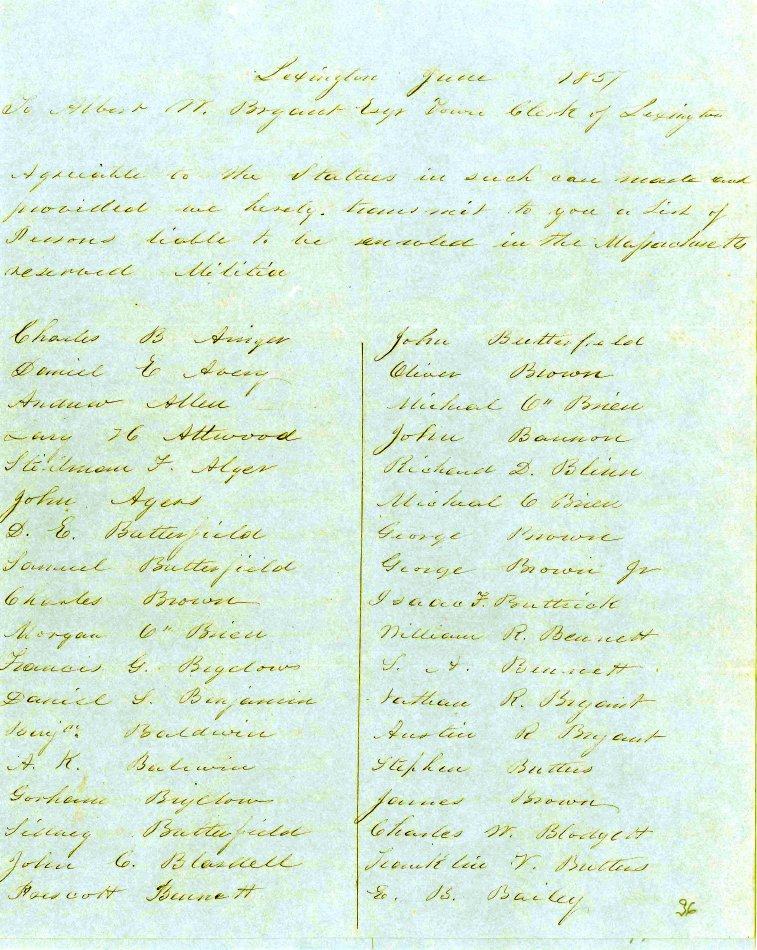 Lexington June 1857
To Albert W. Bryant Esqr Town Clerk of Lexington
Agreiable to the Statues in such case made and
provided we herely transmit to you a List of
Persons liable to be enroled in the Massachusetts
reserved Militia
Charles B
Daniel E Avery
Andrew Allen
H Attwood
Stillman F. Alger
John Ayers
D. E. Butterfield
Samuel Butterfield
Charles Brown
Morgan O" Brien
Francis G. Bigelows
Daniel S. Benjamin
Benjn. Baldwin
A. K. Balwin
Gorham Bigelows
Sidney Butterfield
John C. Blasdell
Prescott Bennett
John Butterfield
Oliver Brown
Micheal O" Brien
John Bannon
Richard D. Blinn
Micheal O Brien
George Brown
George Brown Jr
Isaac F. Buttrick
William R. Bennett
S. A. Bennett
Nathan R. Bryant
Austin R Bryant
Stephen Butters
James Brown
Charles W. Blodgett
Franklin V. Butters
E. B. Bailey
96